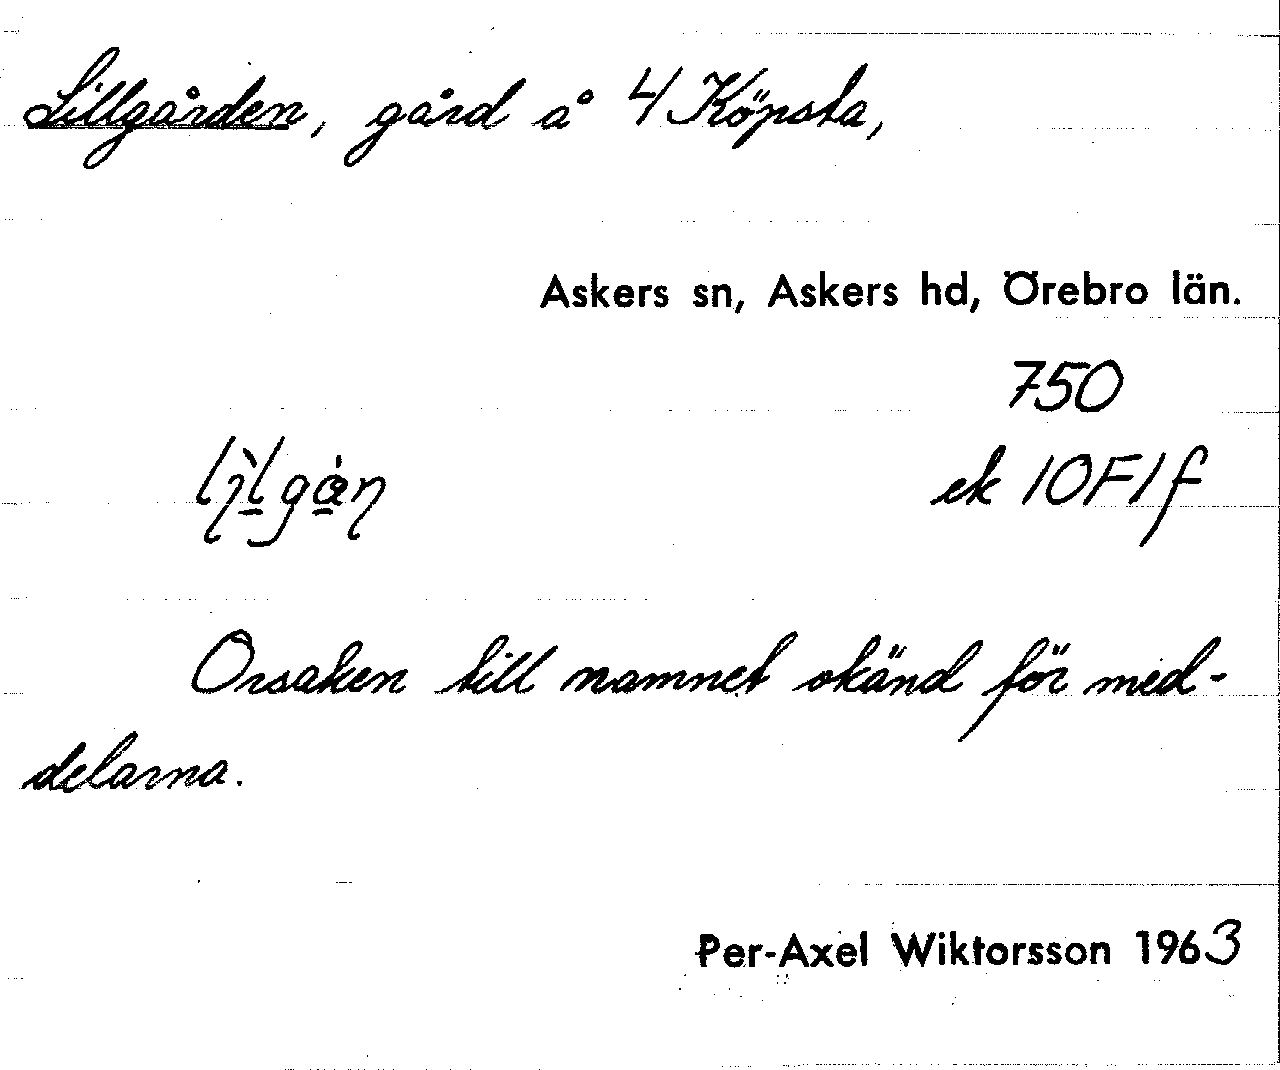 Lillgården, gård å 4 Köpsta,
Askers sn, Askers hd, Örebro län.
750
ek 10F1f
Orsaken till namnet okänd för med-
delarna.
Per-Axel Wiktorsson 1963